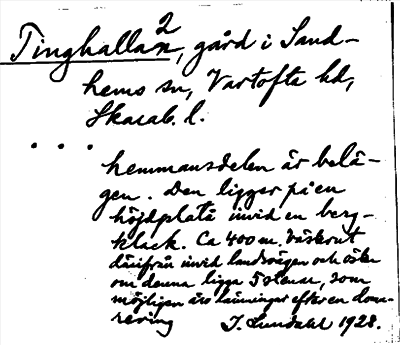 Tinghallan², gård i Sand-
hems sn, Vartofta hd,
Skarab. l.
. . .
hemmansdelen är belä-
gen. Den ligger på en
höjdplatå invid en berg-
klack. Ca 400 m. väster ut
därifrån invid landsvägen och öster
om denna ligga 5 stenar, som
möjligen äro lämningar efter en dom-
arering J. Lundahl 1928.